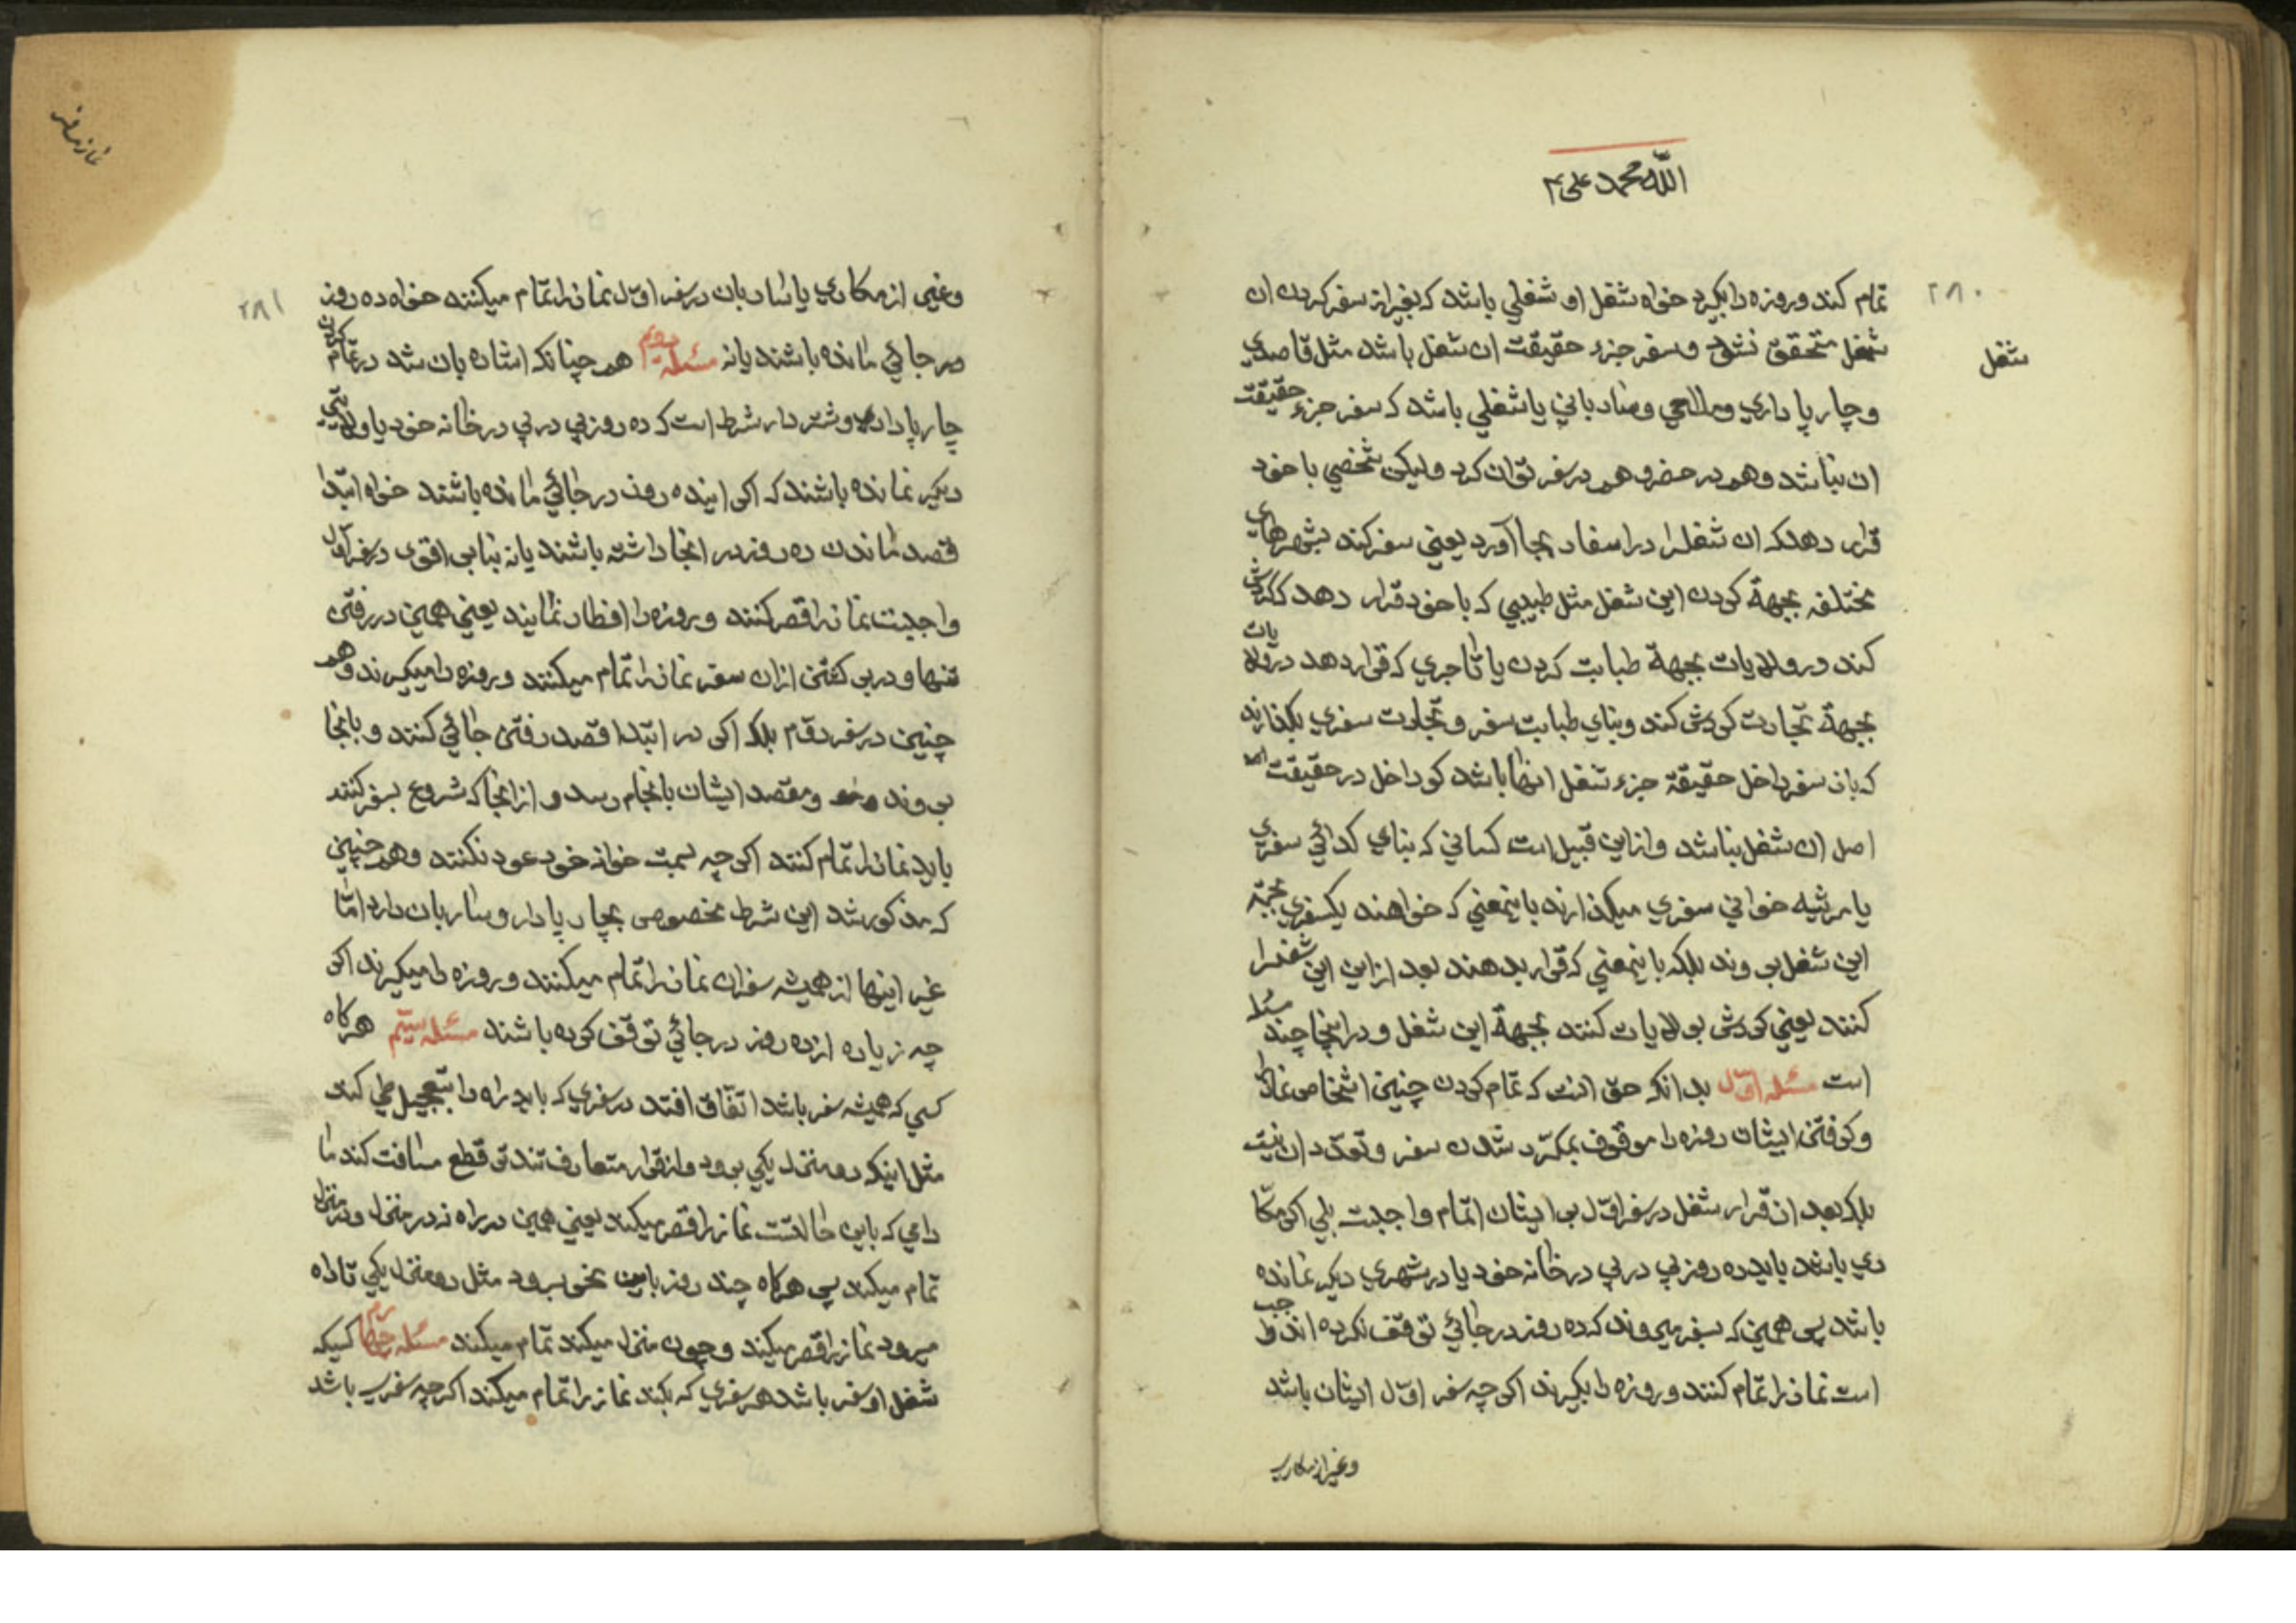 الله محمد علی ۴
۲۸۰
تمام کند و روزه را بکیرد خواه شغل او شغلی باشد که بغیر از سفر کردن ان
شغل متحقق نشود و سفر جزء حقیقت ان شغل باشد مثل قاصدی
شغل
و چارپا داری و ملاحی و ساربانی یا شغلی باشد که سفر جزء حقیقت
ان نباشد و هم در حضر و هم در سفر توان کرد و لیکن شخصی با خود
قرار دهد که ان شغلرا در اسفار بجا آورد یعنی سفر کند بشهرهای
مختلفه بجهة کردن این شغل مثل طبیبی که با خود قرار دهد که کردش
کند در ولایات بجهة طبابت کردن یا تاجری که قرار دهد در ولایات
بجهة تجارت کردش کند و بنای طبابت سفر و تجارت سفری بکذارند
که بان سفر داخل حقیقة جزء شغل انها باشد کو داخل در حقیقت
اصل ان شغل نباشد و از این قبیل است کسانی که بنای کدائی سفری
یا مرثیه خوانی سفری میکذارند باینمعنی که خواهند یکسفری بجهة
این شغل بروند بلکه باینمعنی که قرار بدهند بعد از این این شغلرا
کنند یعنی کردش بولایات کنند بجهة این شغل و در اینجا چند مسئله
است مسئله اوّل بدانکه حق انست که تمام کردن چنین اشخاص نماز را
و کرفتن ایشان روزه را موقوف بمکرّر شدن سفر و تعدّد ان نیست
بلکه بعد از قرار شغل در سفر اوّل بر ایشان اتمام واجبست بلی اکر مکا
ری باشد باید ده روز پی در پی در خانه خود یا در شهری دیکر نمانده
باشد پس همین که بسفر میروند که ده روز در جائی توقف نکرده اند واجب
است نماز را تمام کنند و روزه را بکیرند اکر چه سفر اوّل ایشان باشد
وغیر از مکاری
نماز مسافر
۲۸۱
وغیر از مکاری یا ساربان در سفر اوّل نماز را تمام میکنند خواه ده روز
در جائی مانده باشند یا نه مسئله دویم هم چنانکه اشاره بان شد در تمام کردن
چارپا دار و شتر دار شرط است که ده روز پی در پی در خانه خود یا ولایتی
دیکر نمانده باشند که اکر اینده روز در جائی مانده باشند خواه ابتدا
قصد ماندن ده روز در انجا داشته باشند یا نه بنا بر اقوی در سفر اوّل
واجبست نماز را قصر کنند و روزه را افطار نمایند یعنی همین در رفتن
تنها و در بر کشتن از ان سفر نماز را تمام میکنند و روزه را میکیرند و هم
چنین در سفر دوّم بلکه اکر در ابتدا قصد رفتن جائی کنند و بانجا
بروند و مقصد ایشان بانجام رسد و از انجا که شروع بسفر کنند
باید نماز را تمام کنند اکر چه بسمت خوانه خود عود نکنند و هم چنین
که مذکور شد این شرط مخصوص بچار پا دار و ساربان دارد امّا
غیر اینها از همیشه سفران نماز را تمام میکنند و روزه را میکیرند اکر
چه زیاده از ده روز در جائی توقّف کرده باشند مسئله سیّم هر کاه
کسی که همیشه سفر باشد اتفاق افتد در سفری که باید راه را بتعجیل طی کند
مثل اینکه دو منزل یکی برود و از قرار متعارف تند تر قطع مسافت کند ما
دامی که باین حالتست نماز را قصر میکند یعنی همین در راه نه در منزل و در منزل
تمام میکند پس هر کاه چند روز باین نحو برود مثل دو منزل یکی تا راه
میرود نماز را قصر میکند و چون منزل میکند تمام میکند مسئله چهارم کسیکه
شغل او سفر باشد هر سفری که بکند نماز را تمام میکند اکر چه سفری باشد